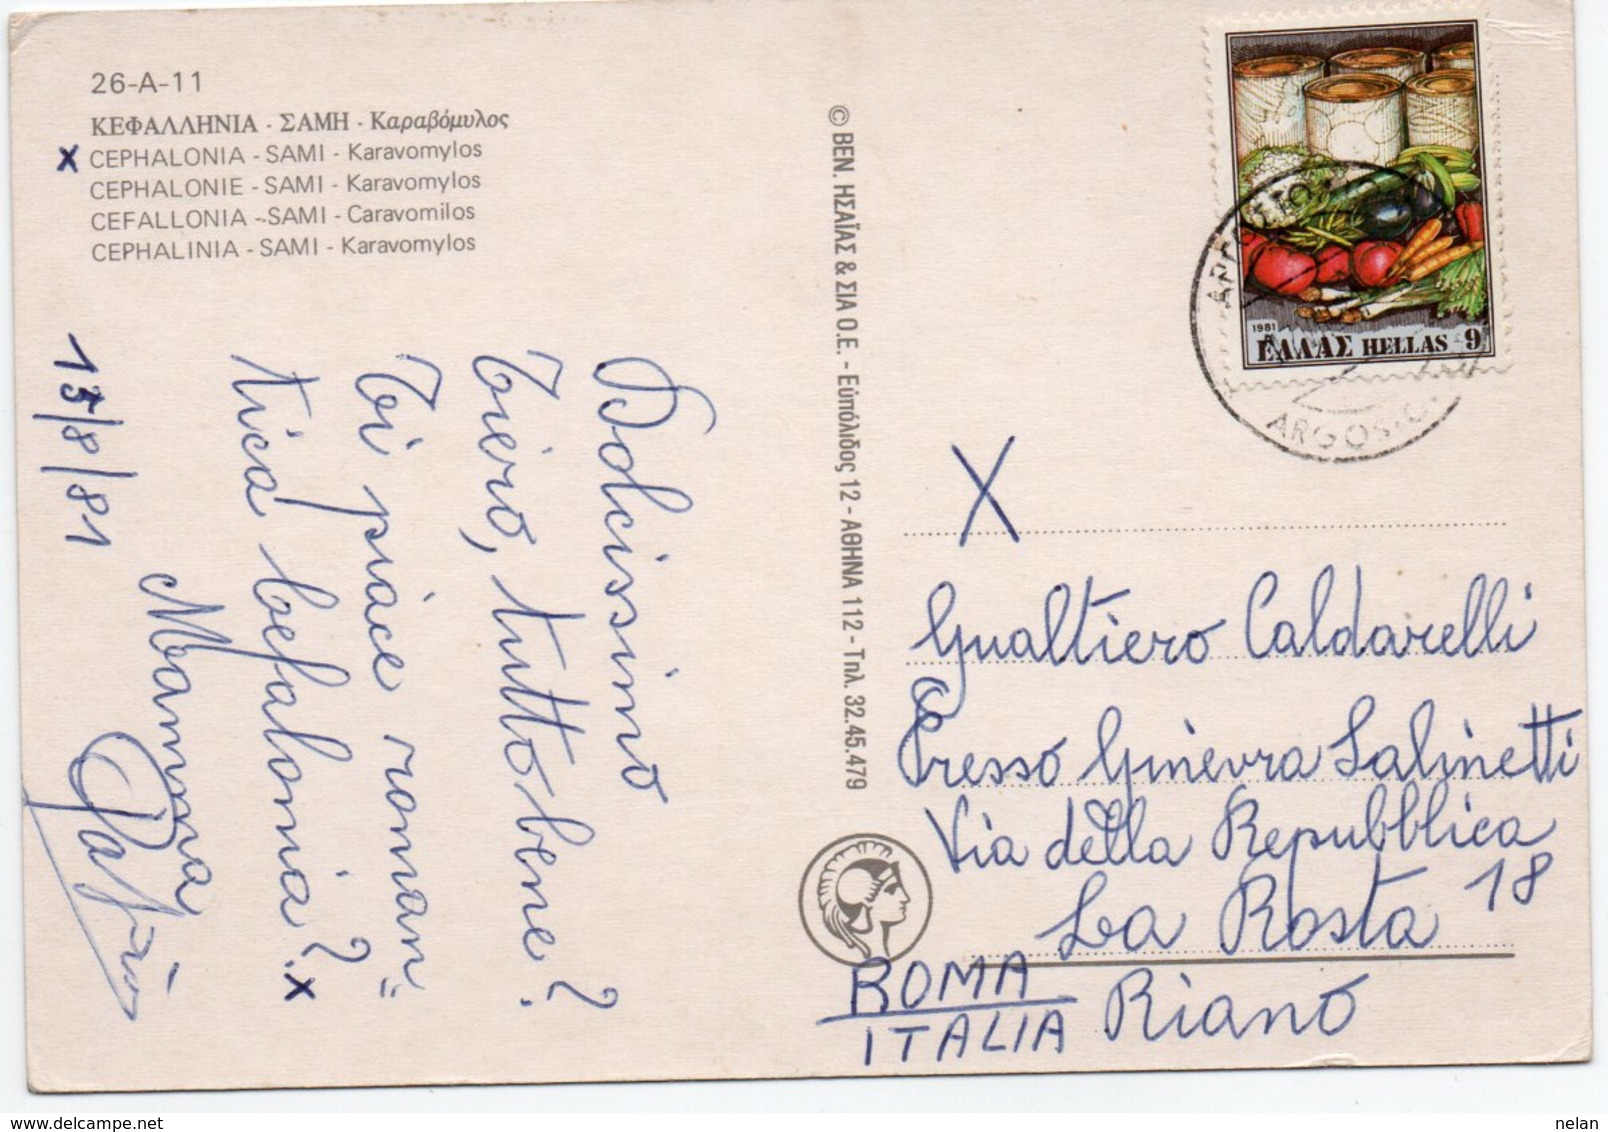 26-A-11
ΚΕΦΑΛΛΗΝΙΑ - ΣΑΜΗ - Καραβόμυλος
X CEPHALONIA - SAMI - Karavomylos
CEPHALONIE - SAMI - Karavomylos
CEFALLONIA - SAMI - Caravomilos
CEPHALINIA - SAMI - Karavomylos
Dolcissimo
tiero, tutto bene?
Ti piace roman=
tica Cefalonia? x
Mamma
13/8/81
© ΒΕΝ. ΗΣΑΪΑΣ & ΣΙΑ Ο.Ε. - Εὐπόλιδος 12 - ΑΘΗΝΑ 112 - Τηλ. 32.45.479
1981
ΕΛΛΑΣ HELLAS 9
ARGOS
X
Gualtiero Caldarelli
Presso Ginevra Salinetti
Via della Repubblica
18
La Rosta
ROMA
Riano
ITALIA
nelan